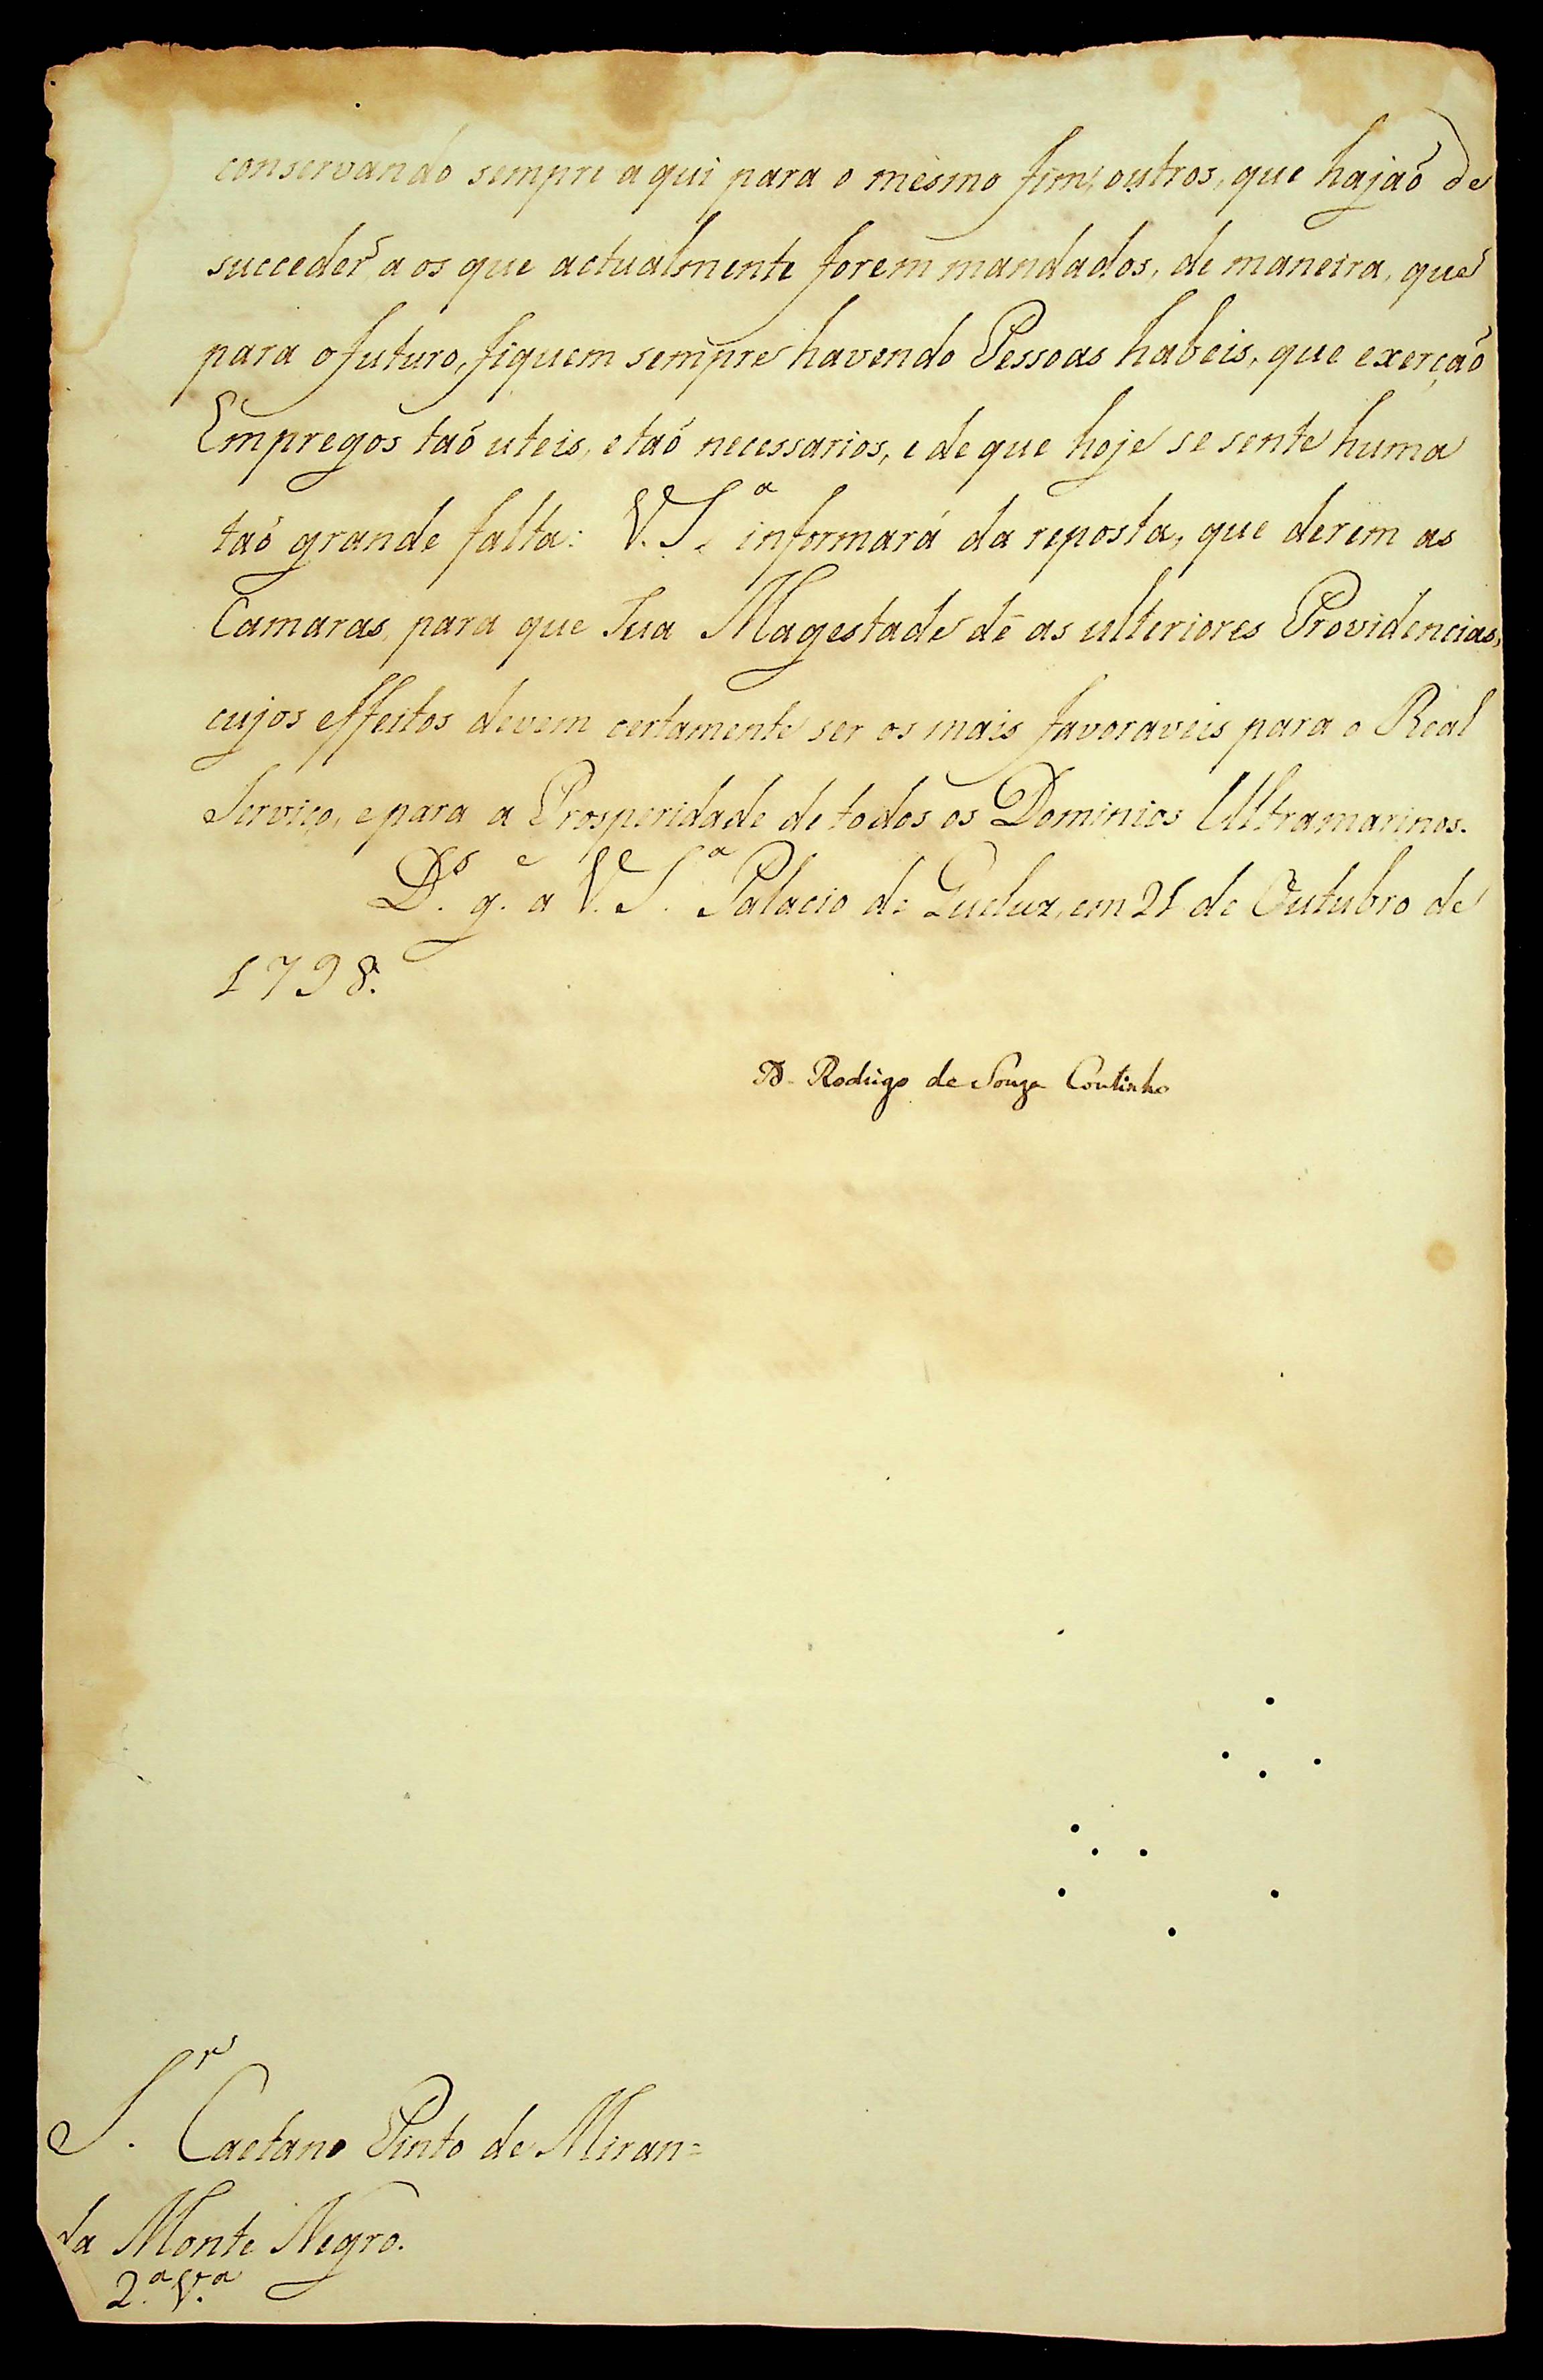 conservando sempre aqui para o mesmo fim, outros, que hajaõ de
succeder aos que actualmente forem mandados, de maneira, que
para o futuro, fiquem sempre havendo Pessoas habeis, que exerçaõ
Empregos taõ uteis, e taõ necessarios, e de que hoje se sente huma
taõ grande falta: V. S.ª informará da reposta, que derem as
Camaras, para que Sua Magestade dê as ulteriores Providencias,
cujos effeitos devem certamente ser os mais favoraveis para o Real
Serviço, e para a Prosperidade de todos os Dominios Ultramarinos.
D.s g.e a V. S.ª Palacio de Queluz, em 21 de Outubro de
1798.
D. Rodrigo de Souza Coutinho
S.r Caetano Pinto de Miran=
da Monte Negro.
2.ª V.ª